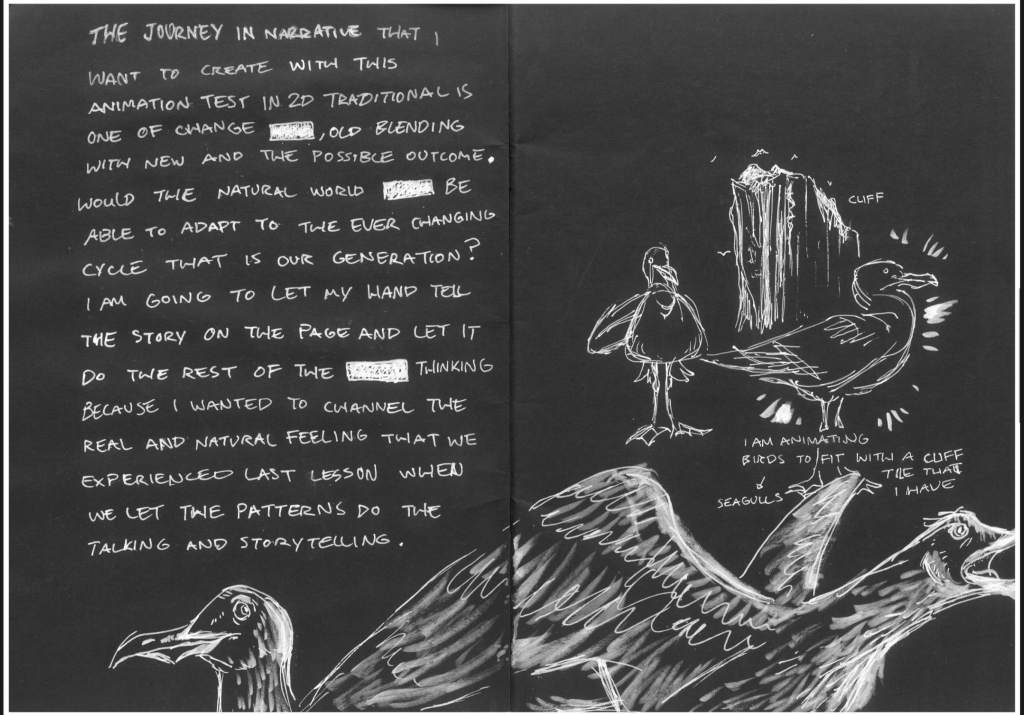 THE JOURNEY IN NARRATIVE THAT I
WANT TO CREATE WITH THIS
ANIMATION TEST IN 2D TRADITIONAL IS
ONE OF CHANGE , OLD BLENDING
WITH NEW AND THE POSSIBLE OUTCOME.
WOULD THE NATURAL WORLD BE
ABLE TO ADAPT TO THE EVER CHANGING
CYCLE THAT IS OUR GENERATION?
I AM GOING TO LET MY HAND TELL
THE STORY ON THE PAGE AND LET IT
DO THE REST OF THE THINKING
BECAUSE I WANTED TO CHANNEL THE
REAL AND NATURAL FEELING THAT WE
EXPERIENCED LAST LESSON WHEN
WE LET THE PATTERNS DO THE
TALKING AND STORYTELLING.
CLIFF
I AM ANIMATING
BIRDS TO FIT WITH A CLIFF
TILE THAT
I HAVE
SEAGULLS